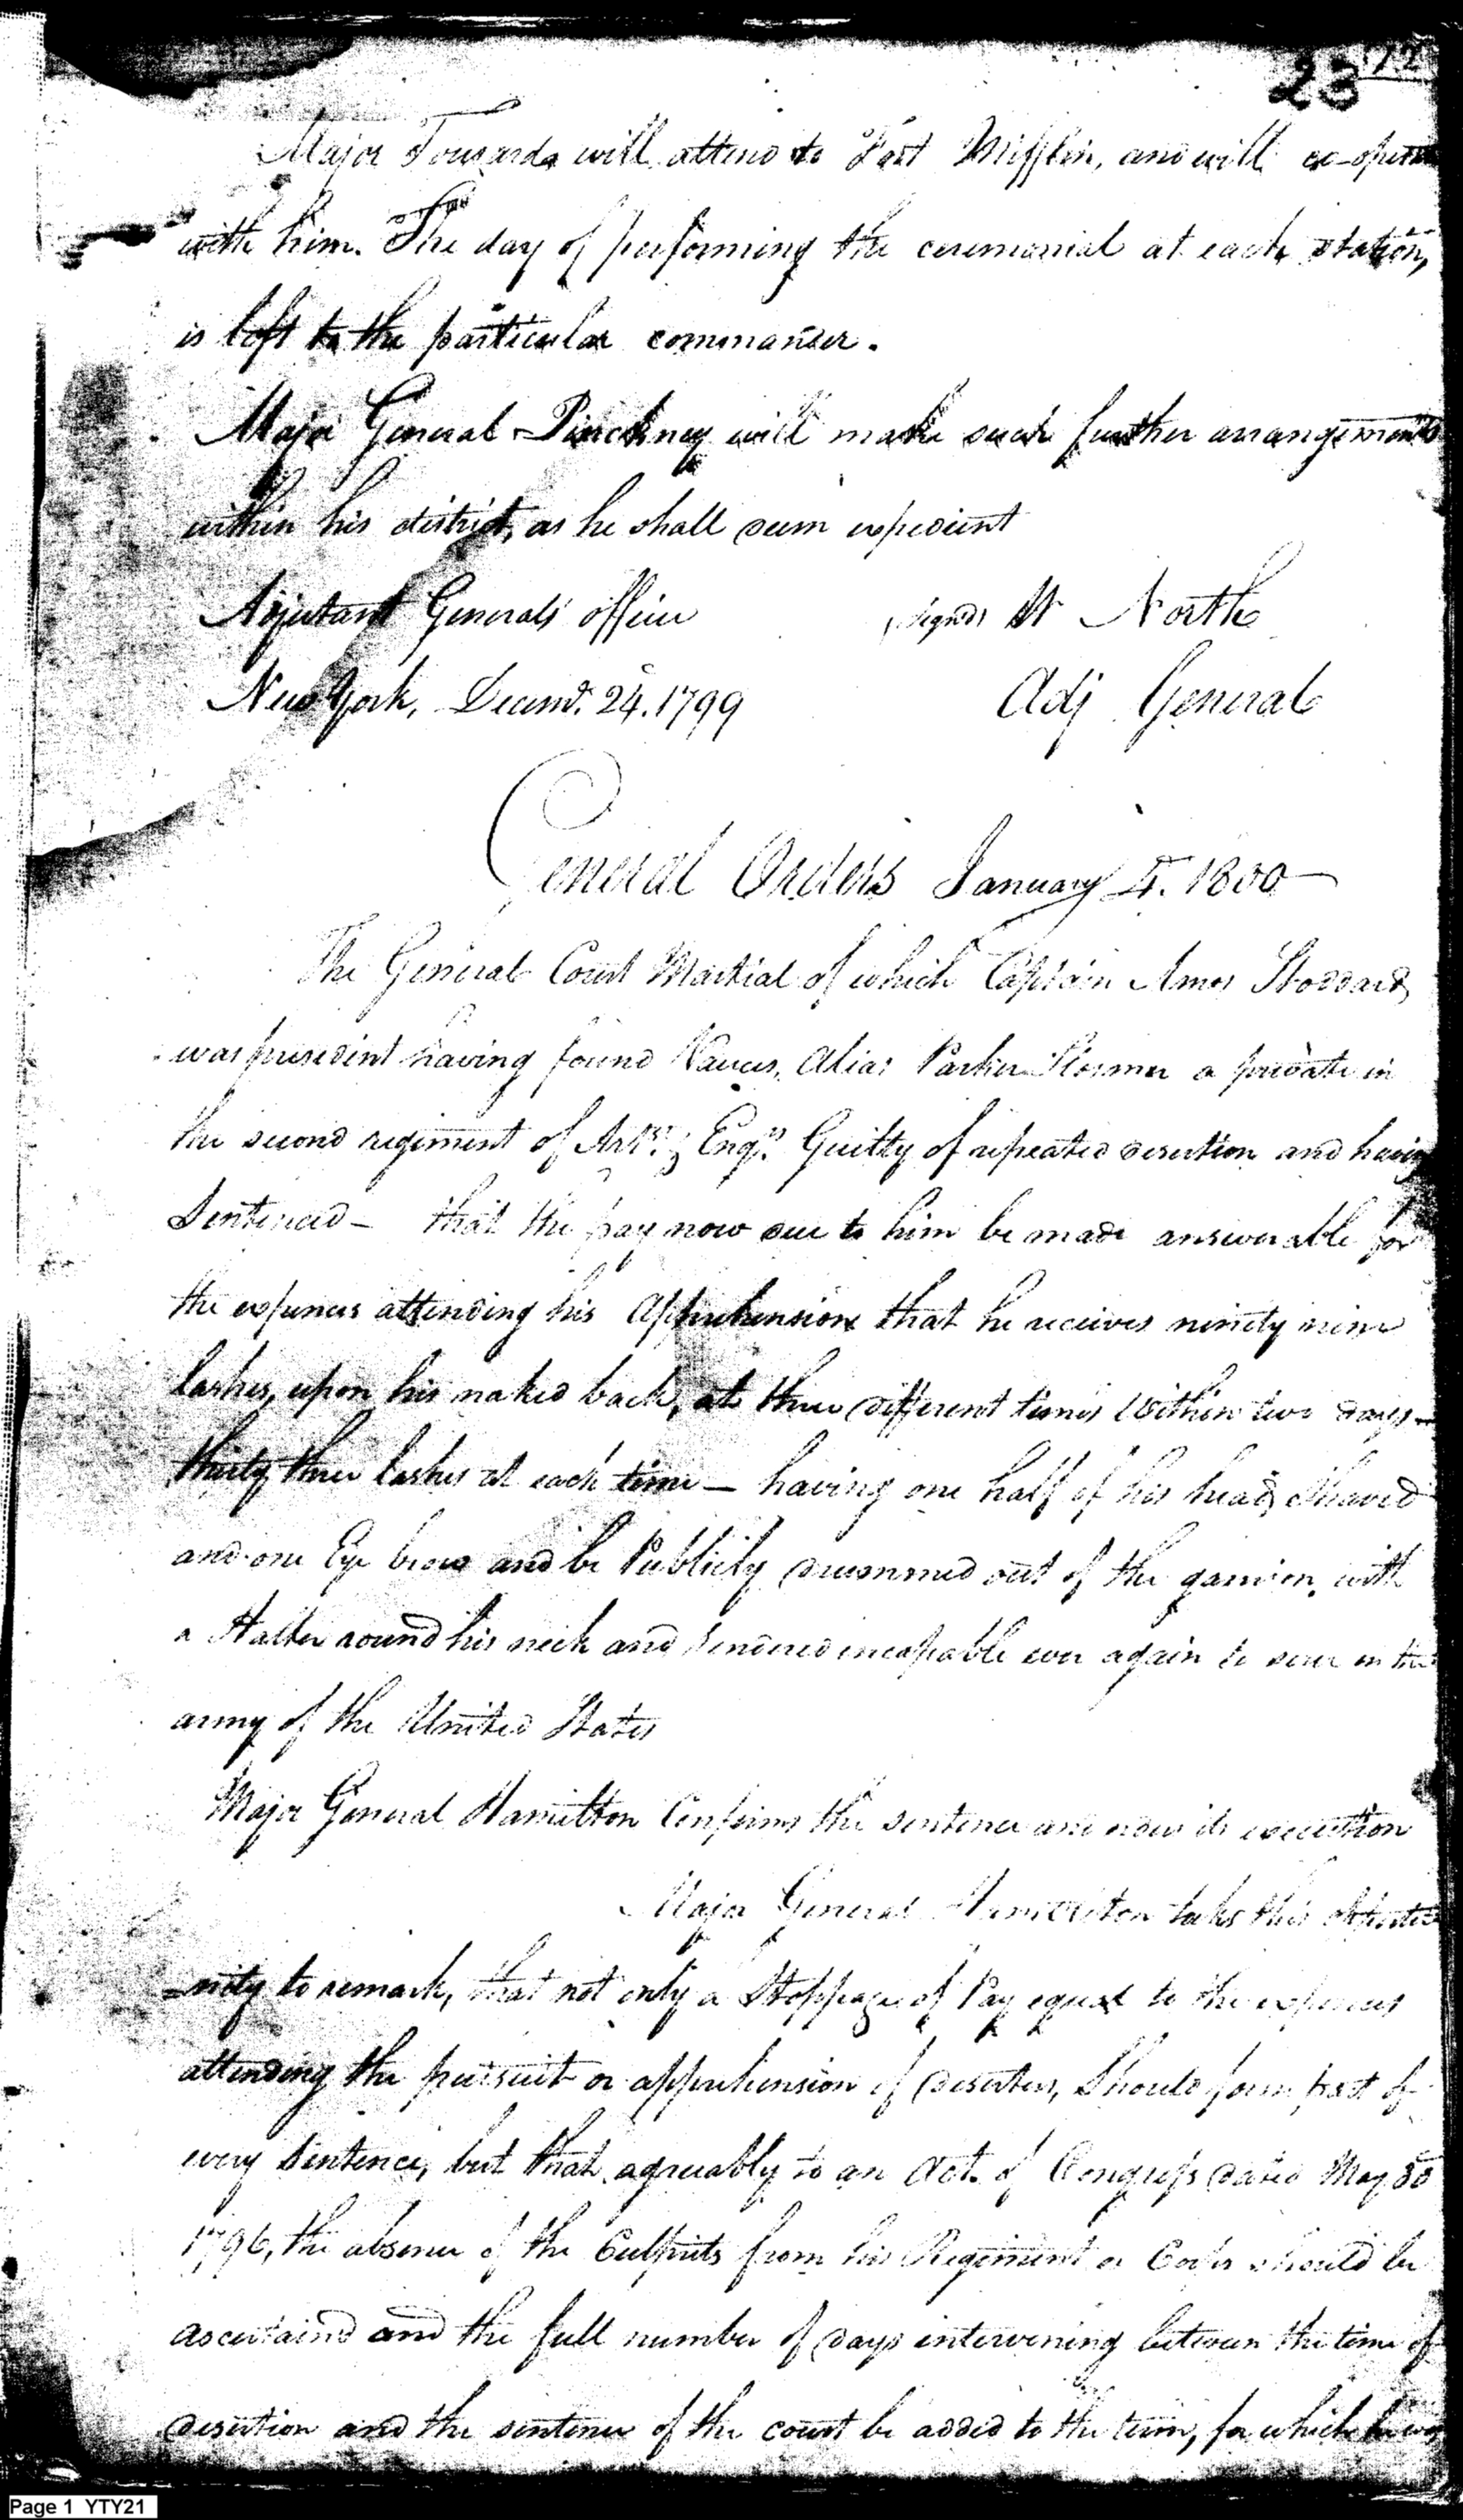 23 172
Major Tousards will attend to Fort Mifflin, and will co-operate
with him. The day of performing the ceremonial at each station,
is left to the particular commander.
Major General Pinckney will make such further arrangements
within his district, as he shall deem expedient
Adjutant Generals office (signed) W North
New York, Decemr. 24. 1799 Adj General
General Orders January 4. 1800
The General Court Martial of which Captain Amos Stoddard,
was president having found Alias Parker a private in
the second regiment of Artrs. & Engrs. Guilty of repeated desertion and having
Sentenced - that the pay now due to him be made answerable for
the expences attending his Apprehension that he receives ninety nine
lashes, upon his naked back, at three different times within two days -
thirty three lashes at each time - having one half of his head, Shaved
and one Eye brow and be Publicly drummed out of the garrison, with
a Halter round his neck and rendered incapable ever again to serve in the
army of the United States
Major General Hamilton Confirms the sentence and its execution
Major General Hamilton takes this opportu
-nity to remark, that not only a Stoppage of Pay equal to the expences
attending the pursuit or apprehension of deserters, Should form part of
every Sentence, but that agreeably to an Act of Congress dated May 30
1796, the absence of the Culprits from his Regiment or Corps should be
ascertaind and the full number of days intervening between the time of
desertion and the sentence of the court be added to the term, for which he was
Page 1 YTY21